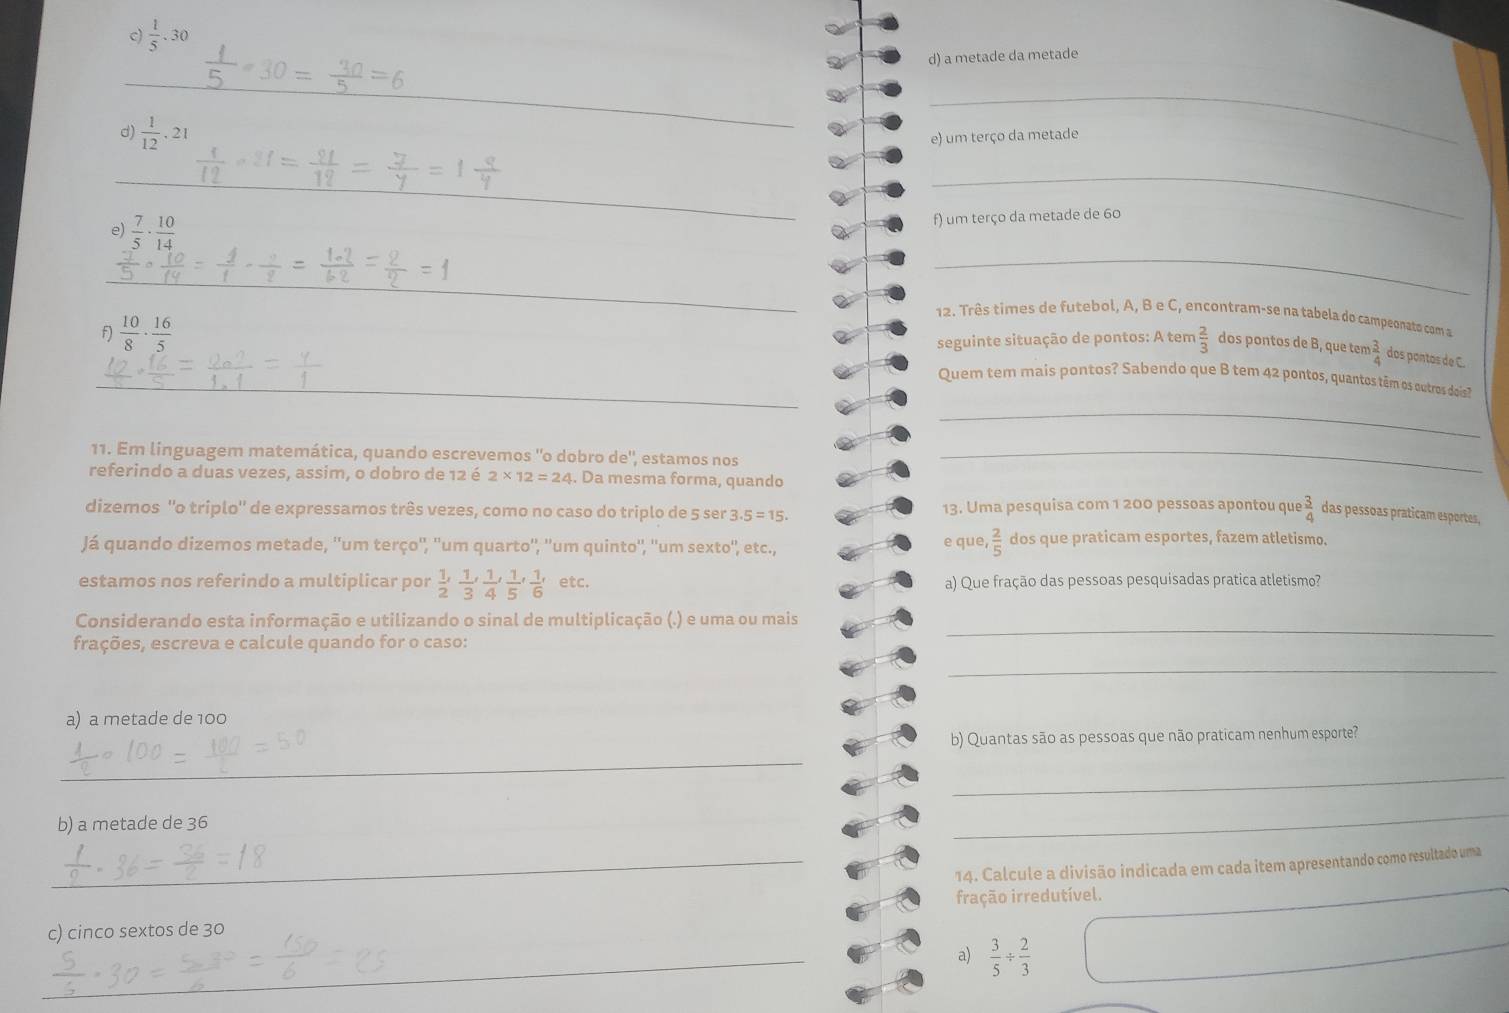 c) 1/5 . 30
1/5 . 30 = 30/5 = 6
d) 1/12 . 21
1/12 . 21 = 21/12 = 7/4 = 1
e) 7/5 . 10/14
7/5 . 10/14 = 1/1 . 2/2 = = 2/2 = 1
f) 10/8 . 16/5
10/8 . 16/5 = 2.2/1.1 = 4/1
11. Em linguagem matemática, quando escrevemos "o dobro de", estamos nos
referindo a duas vezes, assim, o dobro de 12 é 2 × 12 = 24. Da mesma forma, quando
dizemos "o triplo" de expressamos três vezes, como no caso do triplo de 5 ser 3.5 = 15.
Já quando dizemos metade, "um terço", "um quarto", "um quinto", "um sexto", etc.,
estamos nos referindo a multiplicar por 1/2, 1/3, 1/4, 1/5, 1/6, etc.
Considerando esta informação e utilizando o sinal de multiplicação (.) e uma ou mais
frações, escreva e calcule quando for o caso:
a) a metade de 100
1/2 . 100 = 100/2 = 50
b) a metade de 36
1/2 . 36 = 36/2 = 18
c) cinco sextos de 30
5/6 . 30 = 5.30/6 = 150/6 = 25
d) a metade da metade
e) um terço da metade
f) um terço da metade de 60
12. Três times de futebol, A, B e C, encontram-se na tabela do campeonato com a
seguinte situação de pontos: A tem 2/3 dos pontos de B, que tem 3/4 dos pontos de C.
Quem tem mais pontos? Sabendo que B tem 42 pontos, quantos têm os outros dois?
13. Uma pesquisa com 1 200 pessoas apontou que 3/4 das pessoas praticam esportes,
e que, 2/5 dos que praticam esportes, fazem atletismo.
a) Que fração das pessoas pesquisadas pratica atletismo?
b) Quantas são as pessoas que não praticam nenhum esporte?
14. Calcule a divisão indicada em cada item apresentando como resultado uma
fração irredutível.
a) 3/5 ÷ 2/3